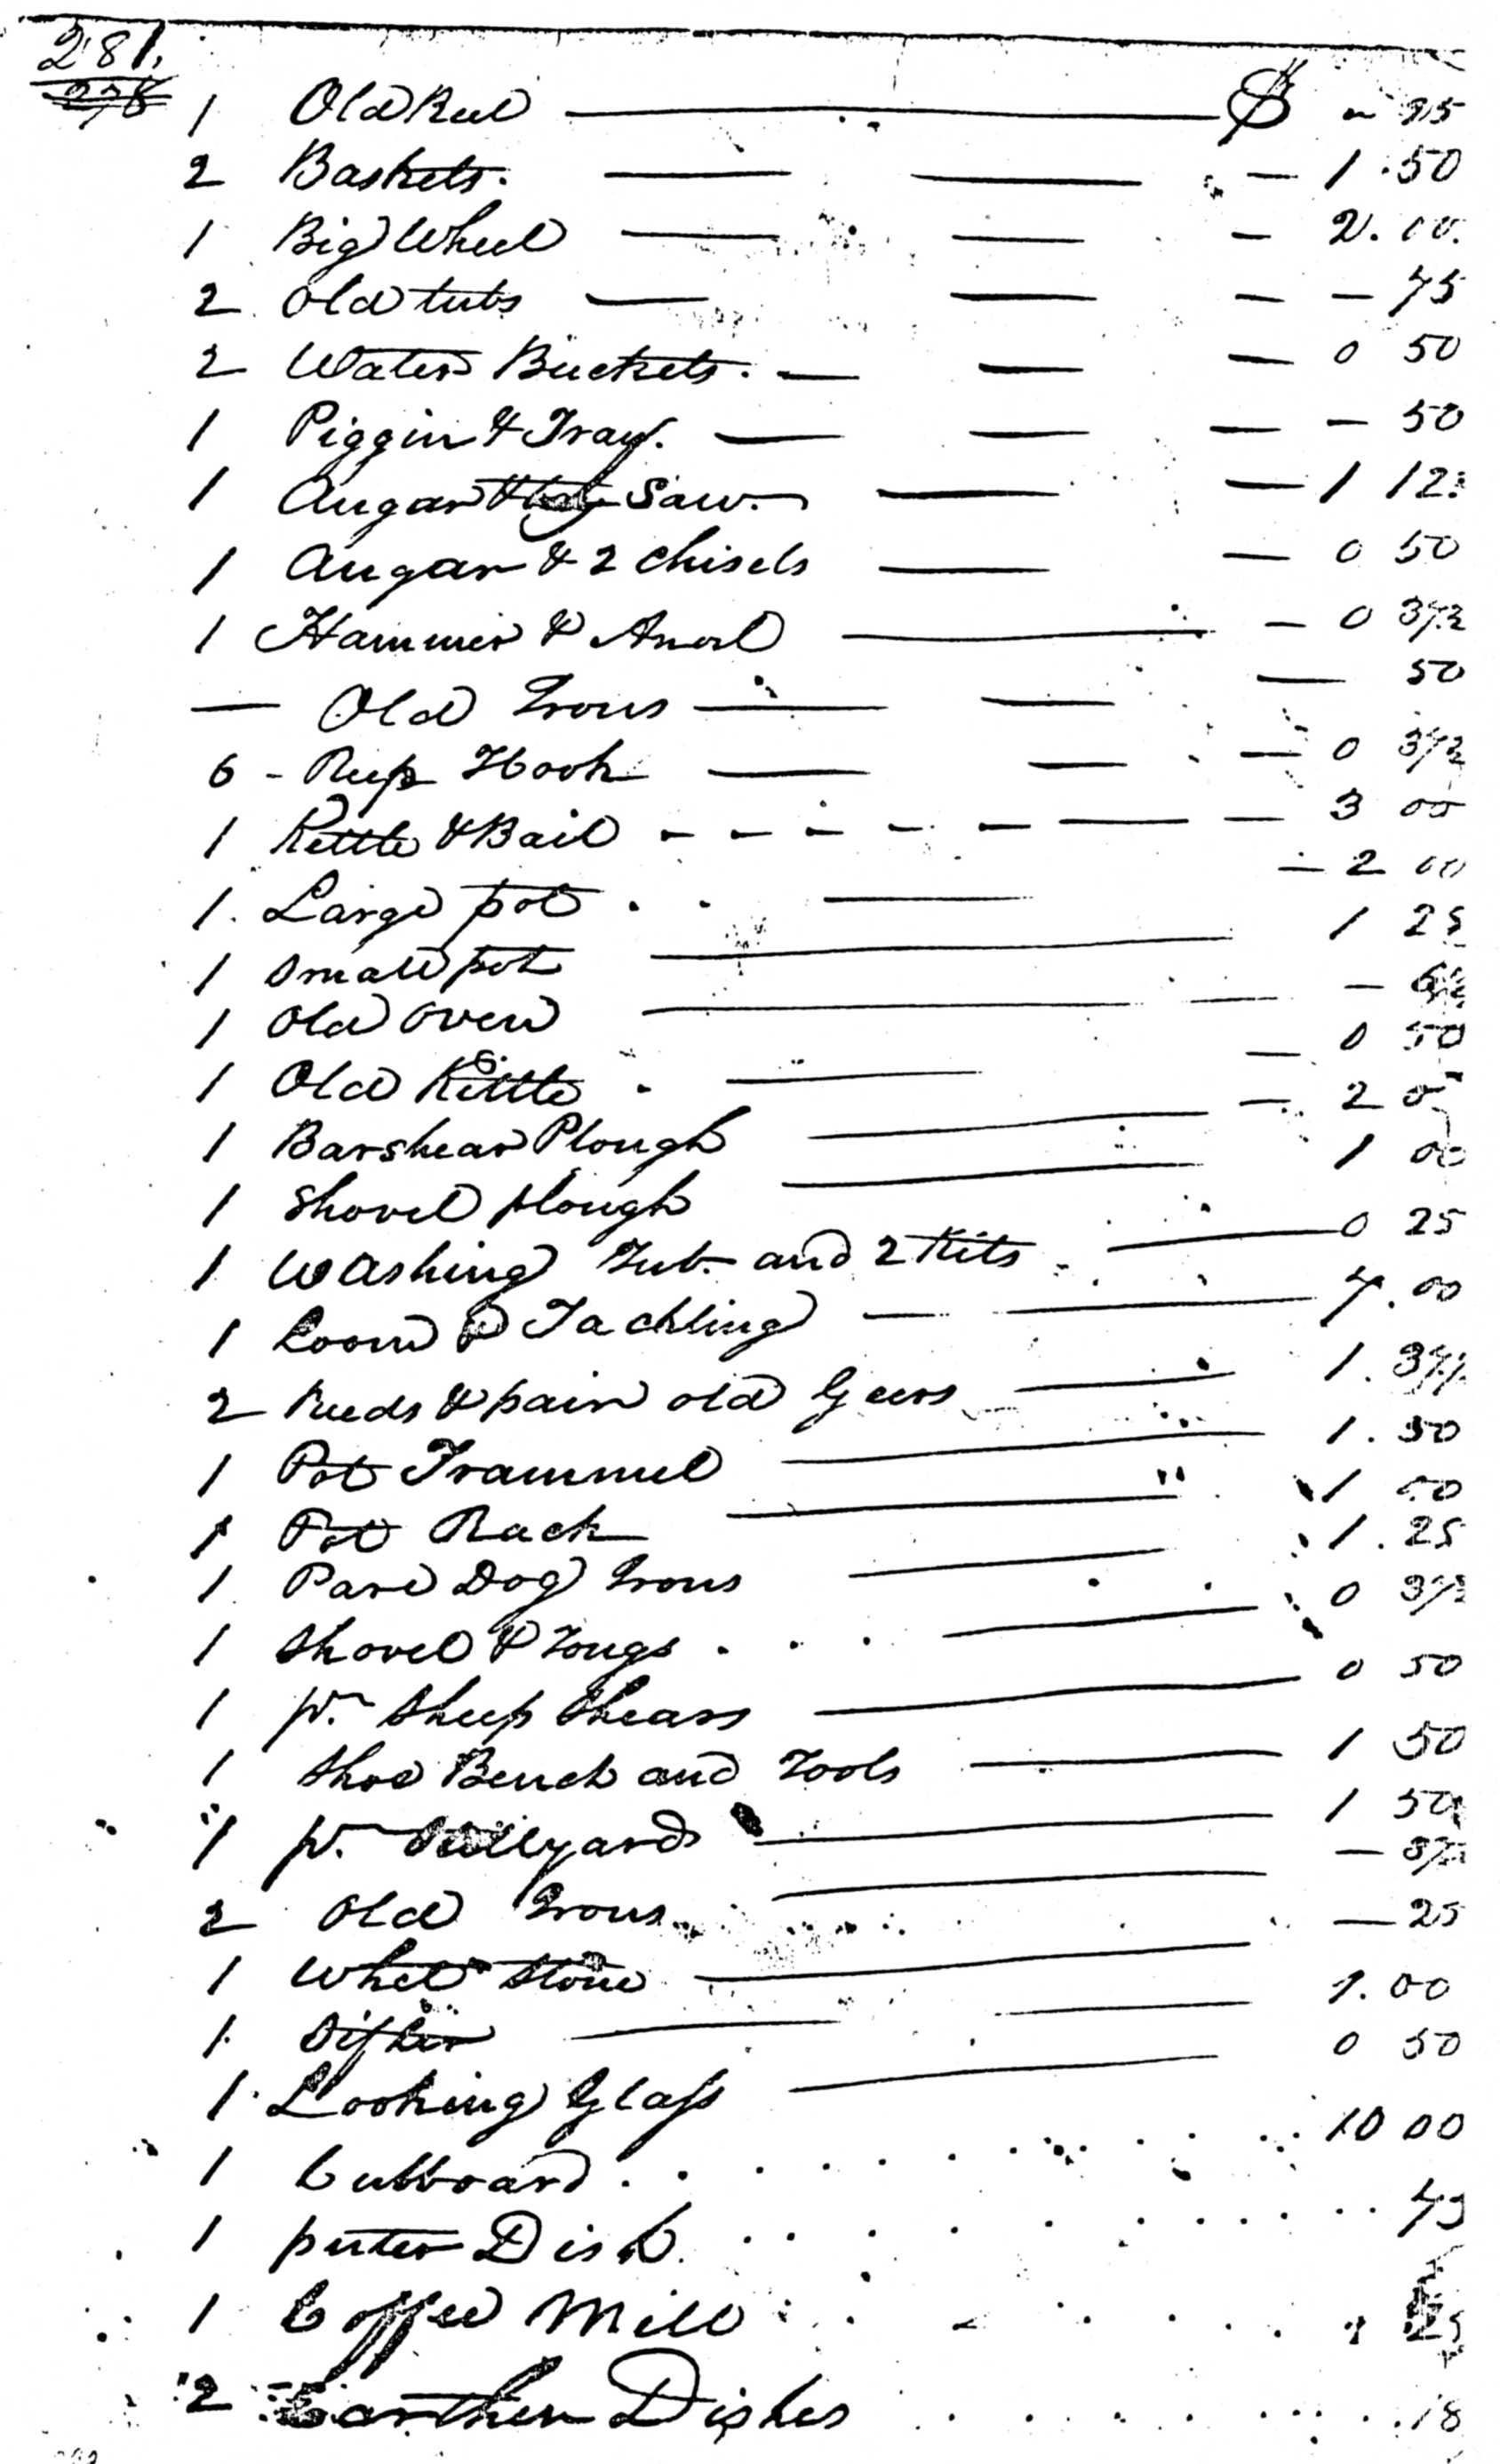 281.
278
1 Old Reel — $ - 25
2 Baskets. — — — 1.50
1 Big Wheel — — — 2.00.
2 Old tubs — — — — 75
2 Water Buckets. — — — 0 50
1 Piggin & Tray. — — — — 50
1 Augar & Saw. — — 1 12
1 Augar & 2 Chisels — — 0 50
1 Hammer & Anvil — — 0 37½
— Old Irons — — — 50
6 - Reep Hook — — — 0 37½
1 Kettle & Bail - - - - — — — 3 00
1. Large pot . . — — 2 00
1 Small pot — 1 25
1 Old Oven — — —
1 Old Kittle . — — 0 50
1 Barshear Plough — — 2 0
1 Shovel plough — 1 00
1 Washing Tub. and 2 Kits — 0 25
1 Loom & Tackling — — 7.00
2 Reeds & pair old Geers — 1.37½
1 Pot Trammel — 1.50
1 Pot Rack — 1 50
1 Pare Dog Irons — 1.25
1 Shovel & Tongs . . . — 0 37½
1 pr. Sheep Shears — 0 50
1 Shoe Bench and Tools — 1 50
1 pr. Stillyards — 1 50
2 Old Irons — — 37½
1 Whet Stone — — 25
1. Sifter — — 1.00
1. Looking Glass — 0 50
1 Cubboard . . . . . . . . 10 00
1 puter Dish. . . . . . . . 75
1 Coffee Mill . . . . . . 25
2 Earthen Dishes . . . . . . . 18